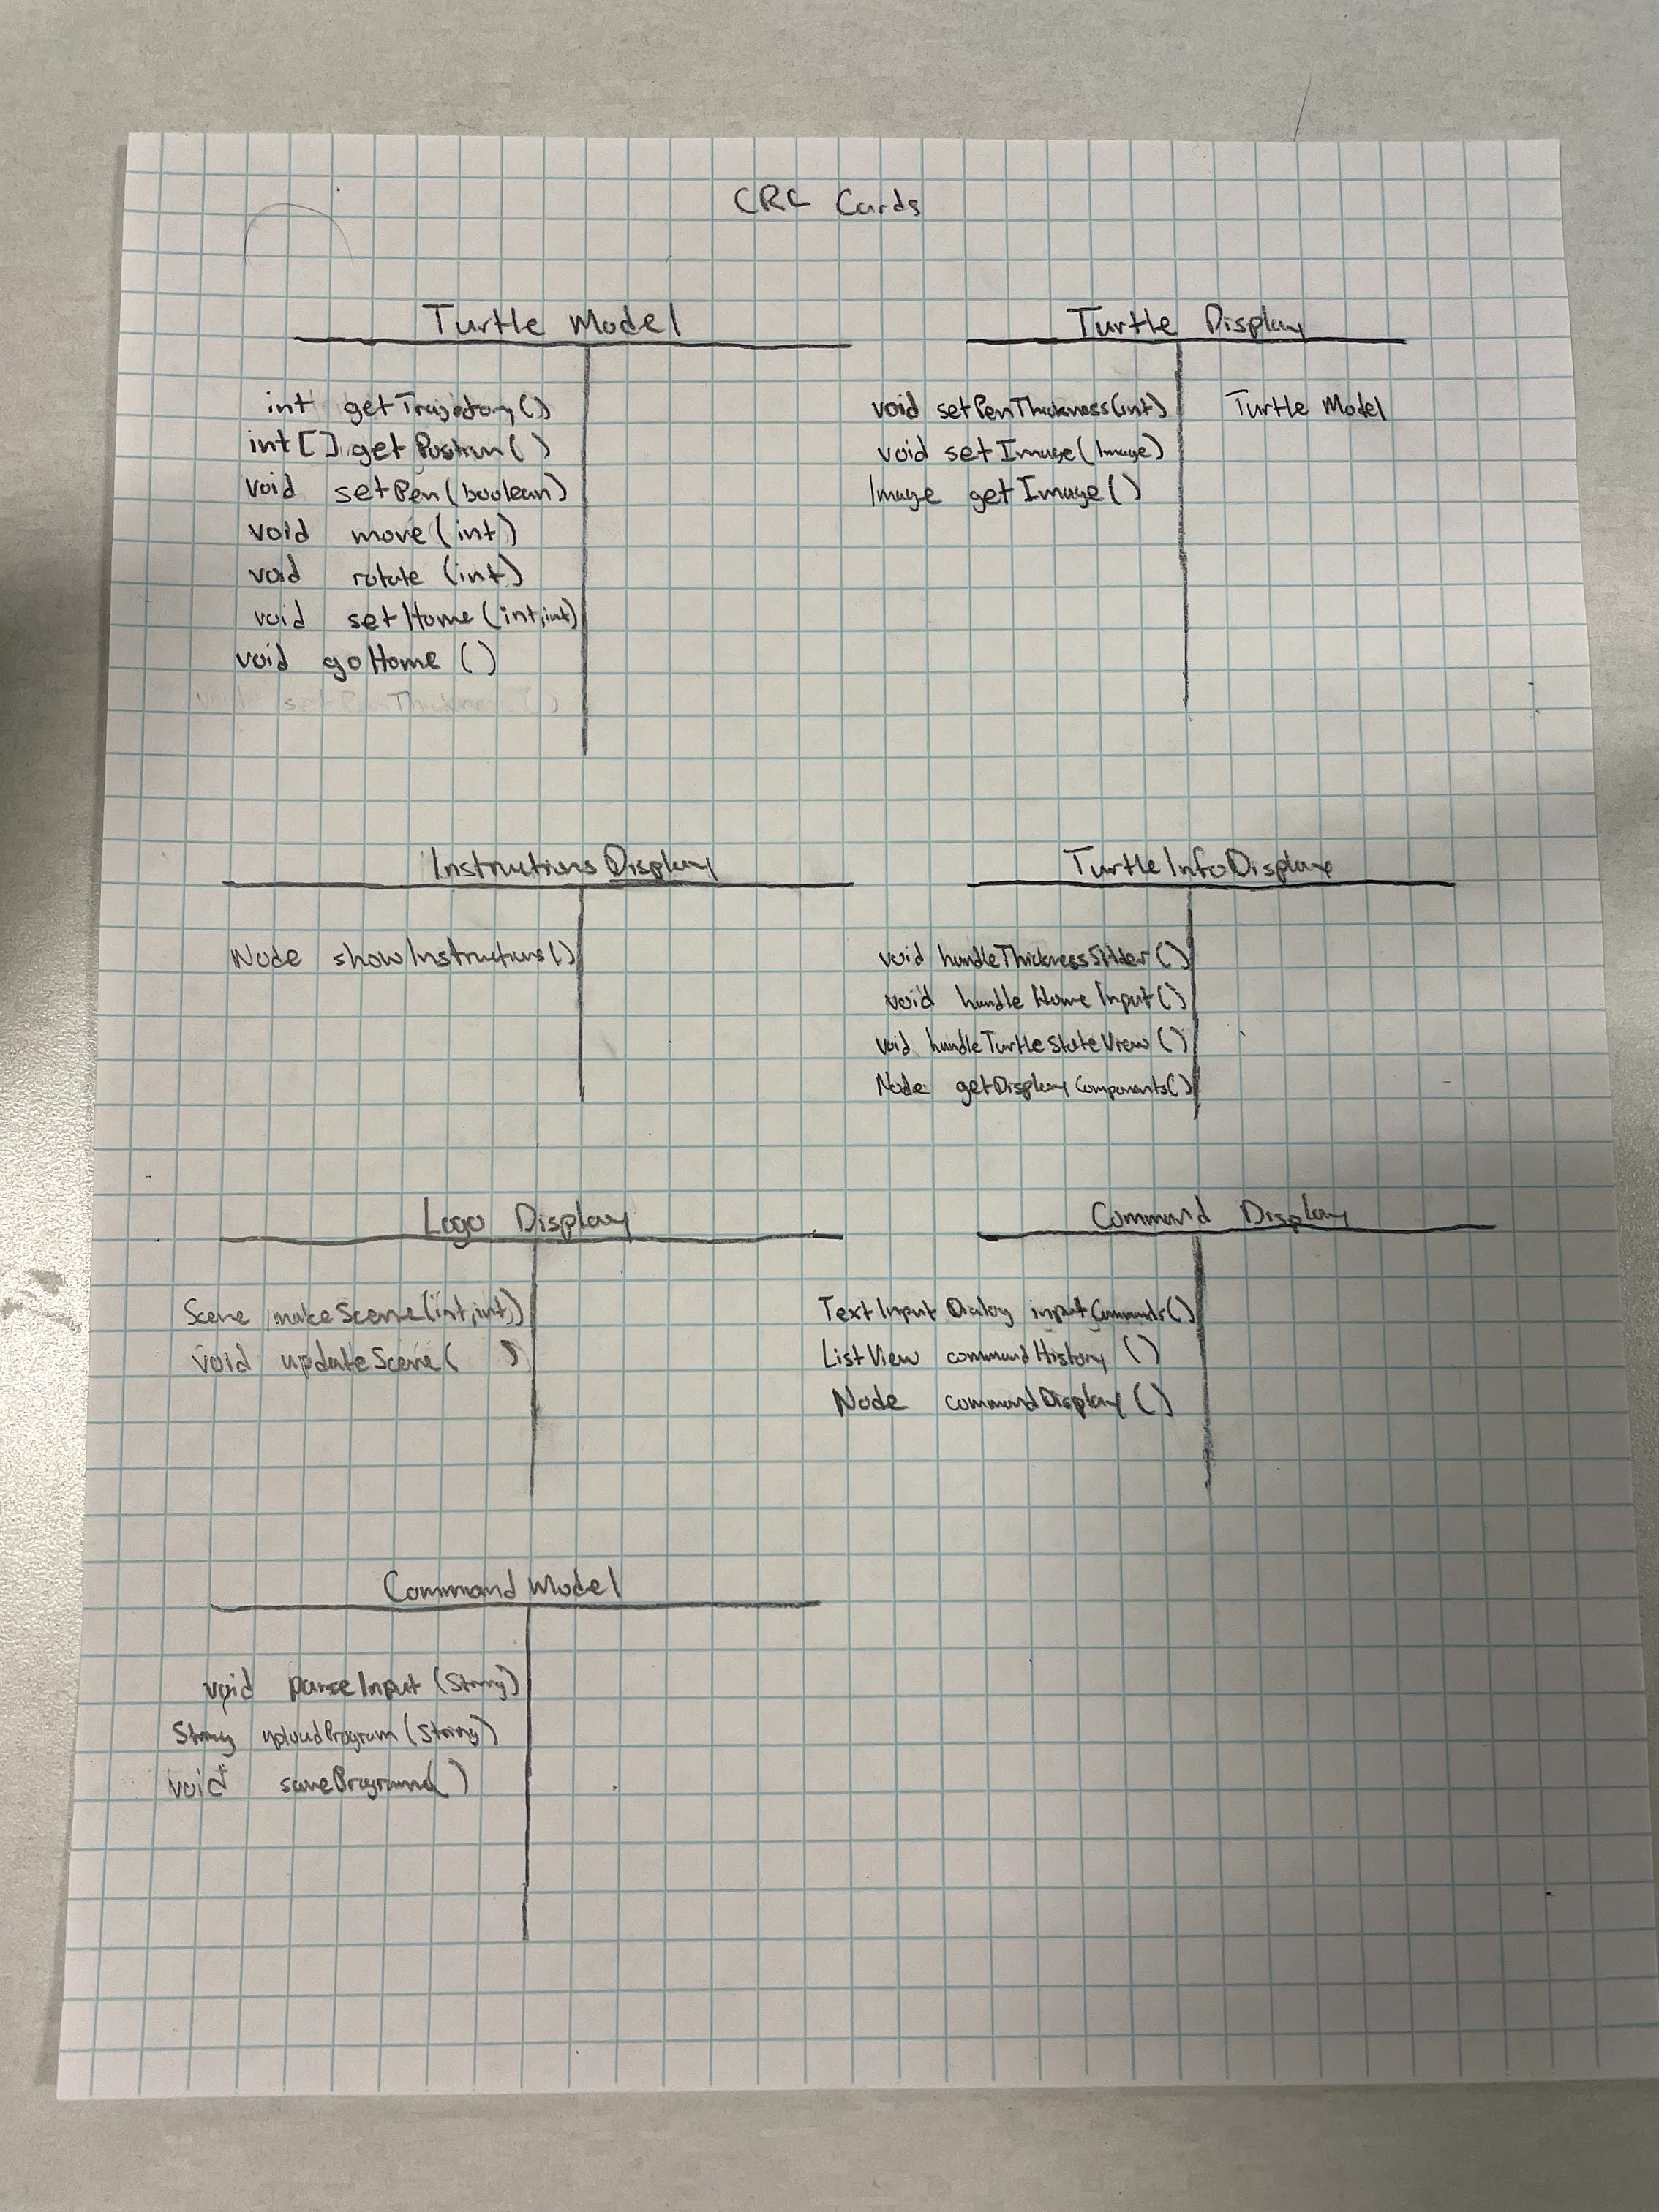 CRC Cards
Turtle Model
int getTrajectory()
int[] getPosition()
void setPen(boolean)
void move(int)
void rotate (int)
void setHome(int,int)
void goHome ()
void setPenThickness()
Turtle Display
void setPenThickness(int) Turtle Model
void setImage(Image)
Image getImage()
Instructions Display
Node showInstructions()
TurtleInfoDisplay
void handleThicknessSlider()
void handleHomeInput()
void handleTurtleStateView()
Node getDisplayComponents()
Logo Display
Scene makeScene(int,int)
void updateScene( )
Command Display
TextInputDialog inputCommands()
ListView commandHistory ()
Node commandDisplay()
Command Model
void parseInput (String)
String uploadProgram(String)
void saveProgram()